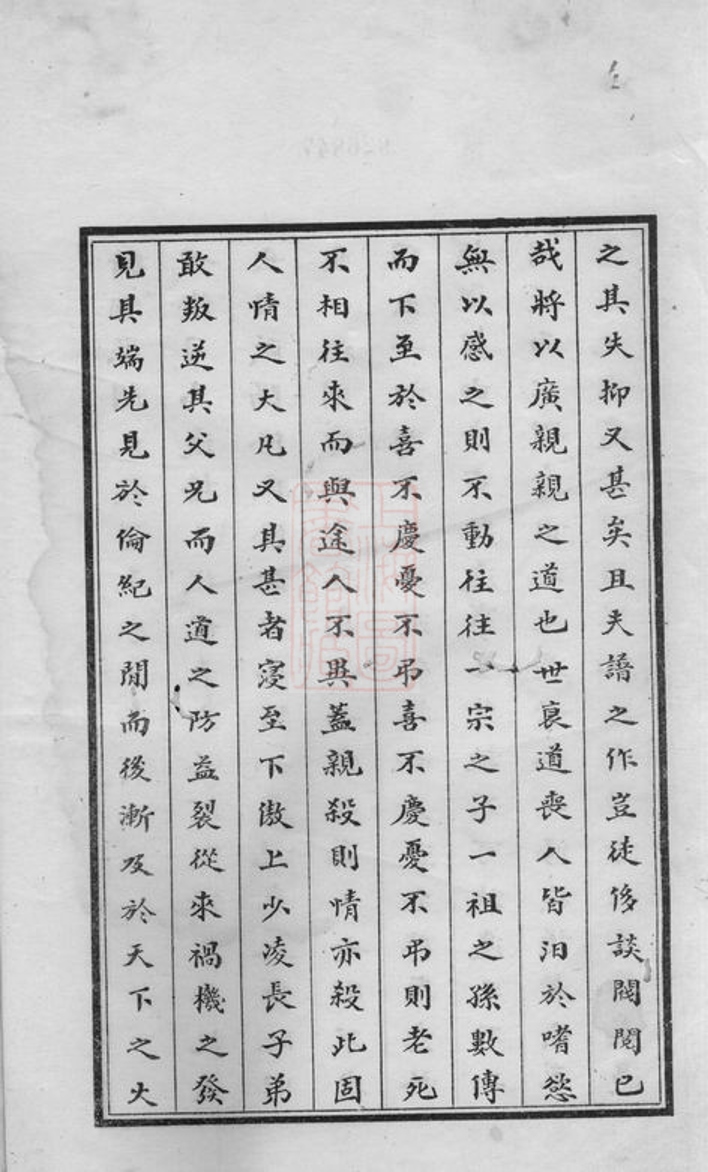 之其失抑又甚矣且夫譜之作豈徒侈談閥閱已
哉將以廣親親之道也世衰道喪人皆汨於嗜慾
無以感之則不動往往一宗之子一祖之孫數傳
而下至於喜不慶憂不弔喜不慶憂不弔則老死
不相往來而與途人不異蓋親殺則情亦殺此固
人情之大凡又其甚者寖至下傲上少凌長子弟
敢叛逆其父兄而人道之防益裂從來禍機之發
見其端先見於倫紀之閒而後漸及於天下之大